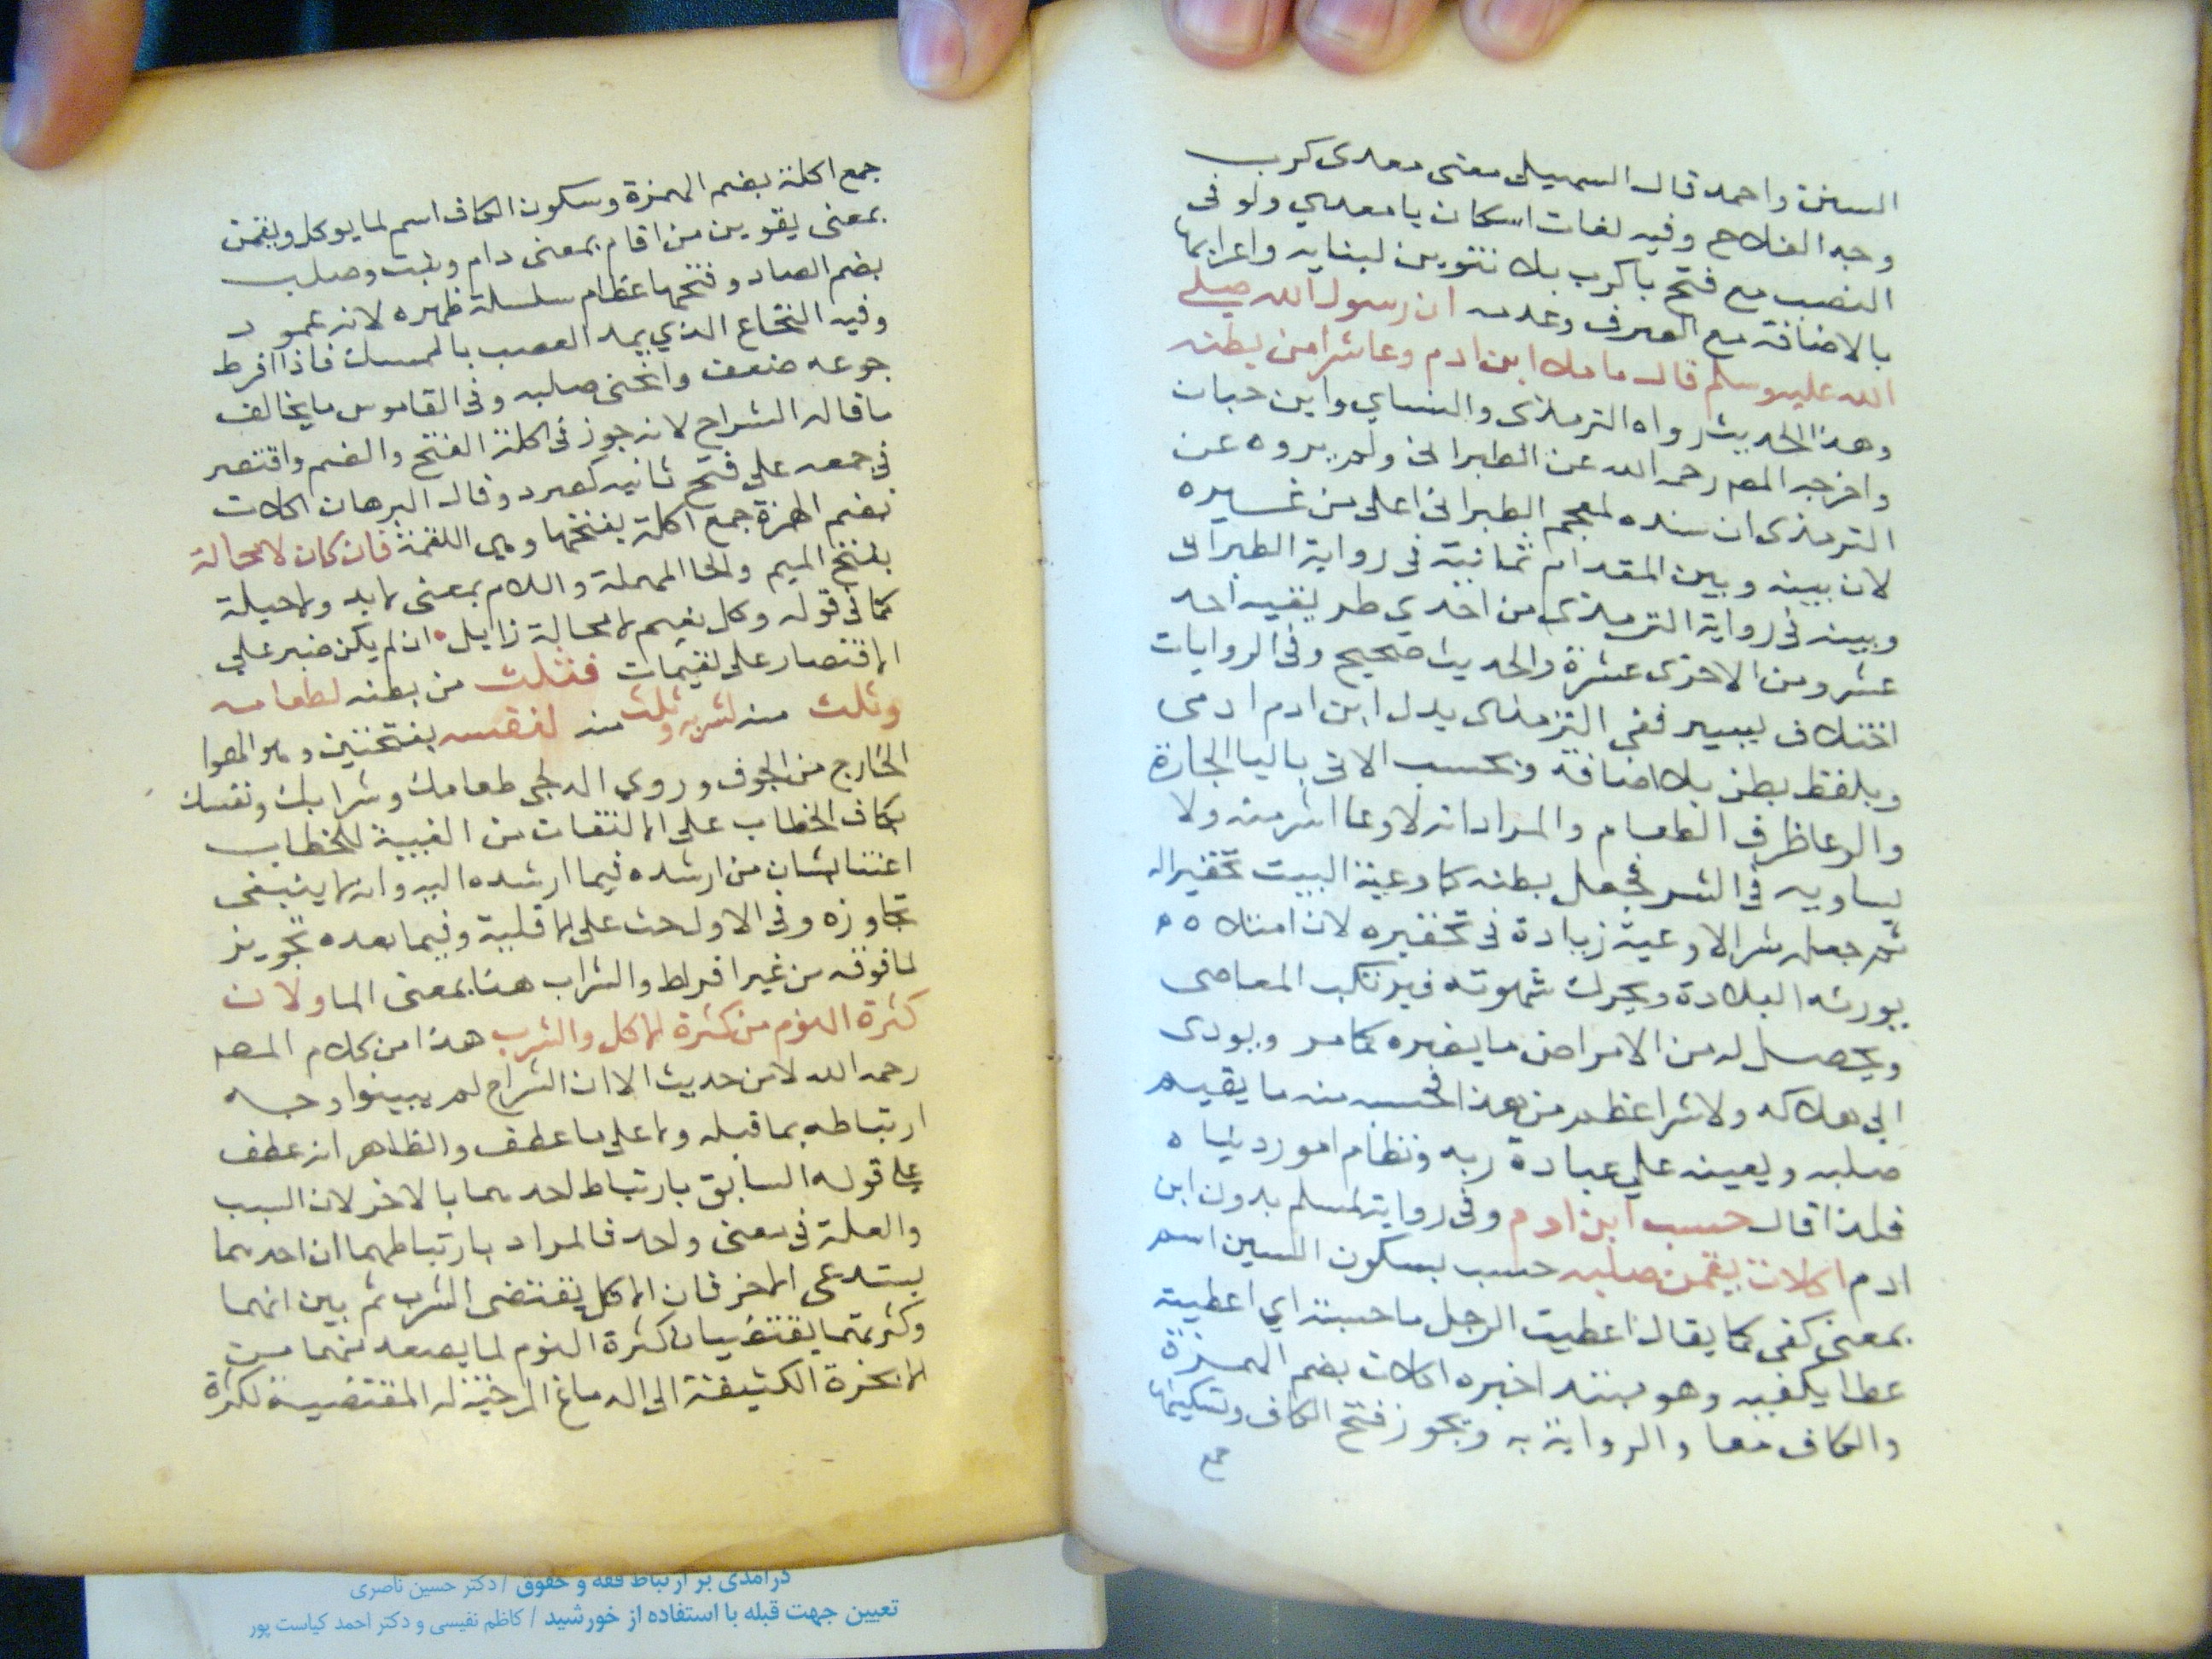 السنن واحمد قال السهيلى معنى معدى كرب
وجه الفلاح وفيه لغات اسكان يا معدي ولو فى
النصب مع فتح با كرب بلا تنوين لبنايه واعرابها
بالاضافة مع الصرف وعدمه ان رسول الله صلى
الله عليه وسلم قال ما ملا ابن ادم وعا شرا من بطنه
وهذا الحديث رواه الترمذى والنساي وابن حبان
واخرجه المصم رحمه الله عن الطبرانى ولم يروه عن
الترمذى ان سنده لمعجم الطبرانى اعلى من غيره
لان بينه وبين المقدام ثمانية فى رواية الطبرانى
وبينه فى رواية الترمذى من احدي طريقيه احد
عشر ومن الاخرى عشرة والحديث صحيح وفى الروايات
اختلاف يسير ففى الترمذى بدل ابن ادم ادمى
وبلفظ بطن بلا اضافة وبحسب الاتى باليا الجارة
والوعا ظرف الطعام والمراد انه لا وعا اشر منه ولا
يساويه فى الشر فجعل بطنه كاوعية البيت تحقيرا له
ثم جعله شر الاوعية زيادة فى تحقيره لان امتلاه م
يورثه البلادة ويحرك شهوته فيرتكب المعاصى
ويحصل له من الامراض ما يضره كما مر ويودى
الى هلاكه ولا شر اعظم من هذا فحسبه منه ما يقيم
صلبه ويعينه علي عبادة ربه ونظام امور دنياه
فلذا قال حسب ابن ادم وفى رواية لمسلم بدون ابن
ادم اكلات يقمن صلبه حسب بسكون السين اسم
بمعنى كفى كما يقال اعطيت الرجل ما حسبه اي اعطيته
عطا يكفيه وهو مبتدا خبره اكلات بضم الهمزة
والكاف معا والرواية به ويجوز فتح الكاف وتسكينها
جمع
جمع اكلة بضم الهمزة وسكون الكاف اسم لما يوكل ويقمن
بمعنى يقوين من اقام بمعنى دام وثبت وصلب
بضم الصاد وفتحها عظام سلسلة ظهره لانه عمود
وفيه النخاع الذي يمد العصب بالمسك فاذا افرط
جوعه ضعف وانحنى صلبه وفى القاموس ما يخالف
ما قاله الشراح لانه جوز فى اكلة الفتح والضم واقتصر
في جمعه على فتح ثانيه كصرد وقال البرهان اكلات
بضم الهمزة جمع اكلة بفتحها وهي اللقمة فان كان لا محالة
بفتح الميم والحا المهملة واللام بمعنى لا بد ولا حيلة
كما فى قوله وكل نعيم لا محالة زايل ان لم يكن صبر على
الاقتصار على لقيمات فثلث من بطنه لطعامه
وثلث منه لشربه وثلث منه لنفسه بفتحتين وهو الهوا
الخارج من الجوف وروي الدلجى طعامك وشرابك ونفسك
بكاف الخطاب على الالتفات من الغيبة للخطاب
اعتنا بشان من ارشده فيما ارشده اليه وانه لا ينبغى
تجاوزه وفى الاول حث على الاقلية وفيما بعده تجويز
لما فوقه من غير افراط والشراب هنا بمعنى الما ولان
كثرة النوم من كثرة الاكل والشرب هذا من كلام المصم
رحمه الله لا من حديث الا ان الشراح لم يبينوا وجه
ارتباطه بما قبله ولا على ما عطف والظاهر انه عطف
على قوله السابق بارتباط احدهما بالاخر لان السبب
والعلة فى معنى واحد فالمراد بارتباطهما ان احدهما
يستدعى الاخر فان الاكل يقتضى الشرب ثم بين انهما
وكثرتهما يقتضيان كثرة النوم لما يصعد منهما من
الابخرة الكثيفة الى الدماغ المرخية له المقتضية لكثرة
درآمدی بر ارتباط فقه و حقوق / دکتر حسین ناصری
تعیین جهت قبله با استفاده از خورشید / کاظم نفیسی و دکتر احمد کیاست پور